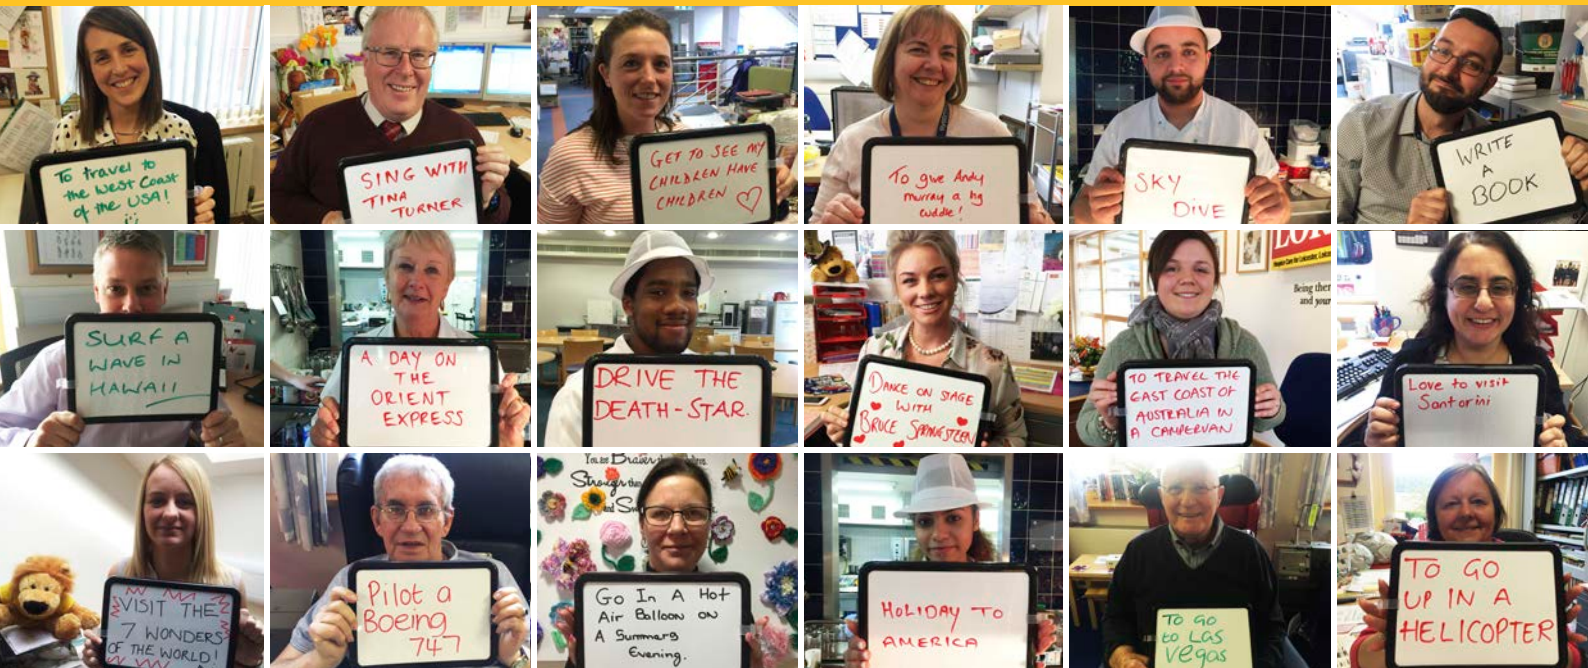 To travel to
the West Coast
of the USA!
SING WITH
TINA
TURNER
GET TO SEE MY
CHILDREN HAVE
CHILDREN
To give Andy
murray a big
cuddle!
SKY
DIVE
WRITE
A
BOOK
SURF A
WAVE IN
HAWAII
A DAY ON
THE
ORIENT
EXPRESS
DRIVE THE
DEATH-STAR.
DANCE ON STAGE
WITH
BRUCE SPRINGSTEEN
Being ther
and your
TO TRAVEL THE
EAST COAST OF
AUSTRALIA IN
A CAMPERVAN
Love to visit
Santorini
VISIT THE
7 WONDERS
OF THE WORLD!
Pilot a
Boeing
747
You are Braver
Stronger
and
Go In A Hot
Air Balloon on
A Summers
Evening.
HOLIDAY TO
AMERICA
To Go
to Las
Vegas
TO GO
UP IN A
HELICOPTER